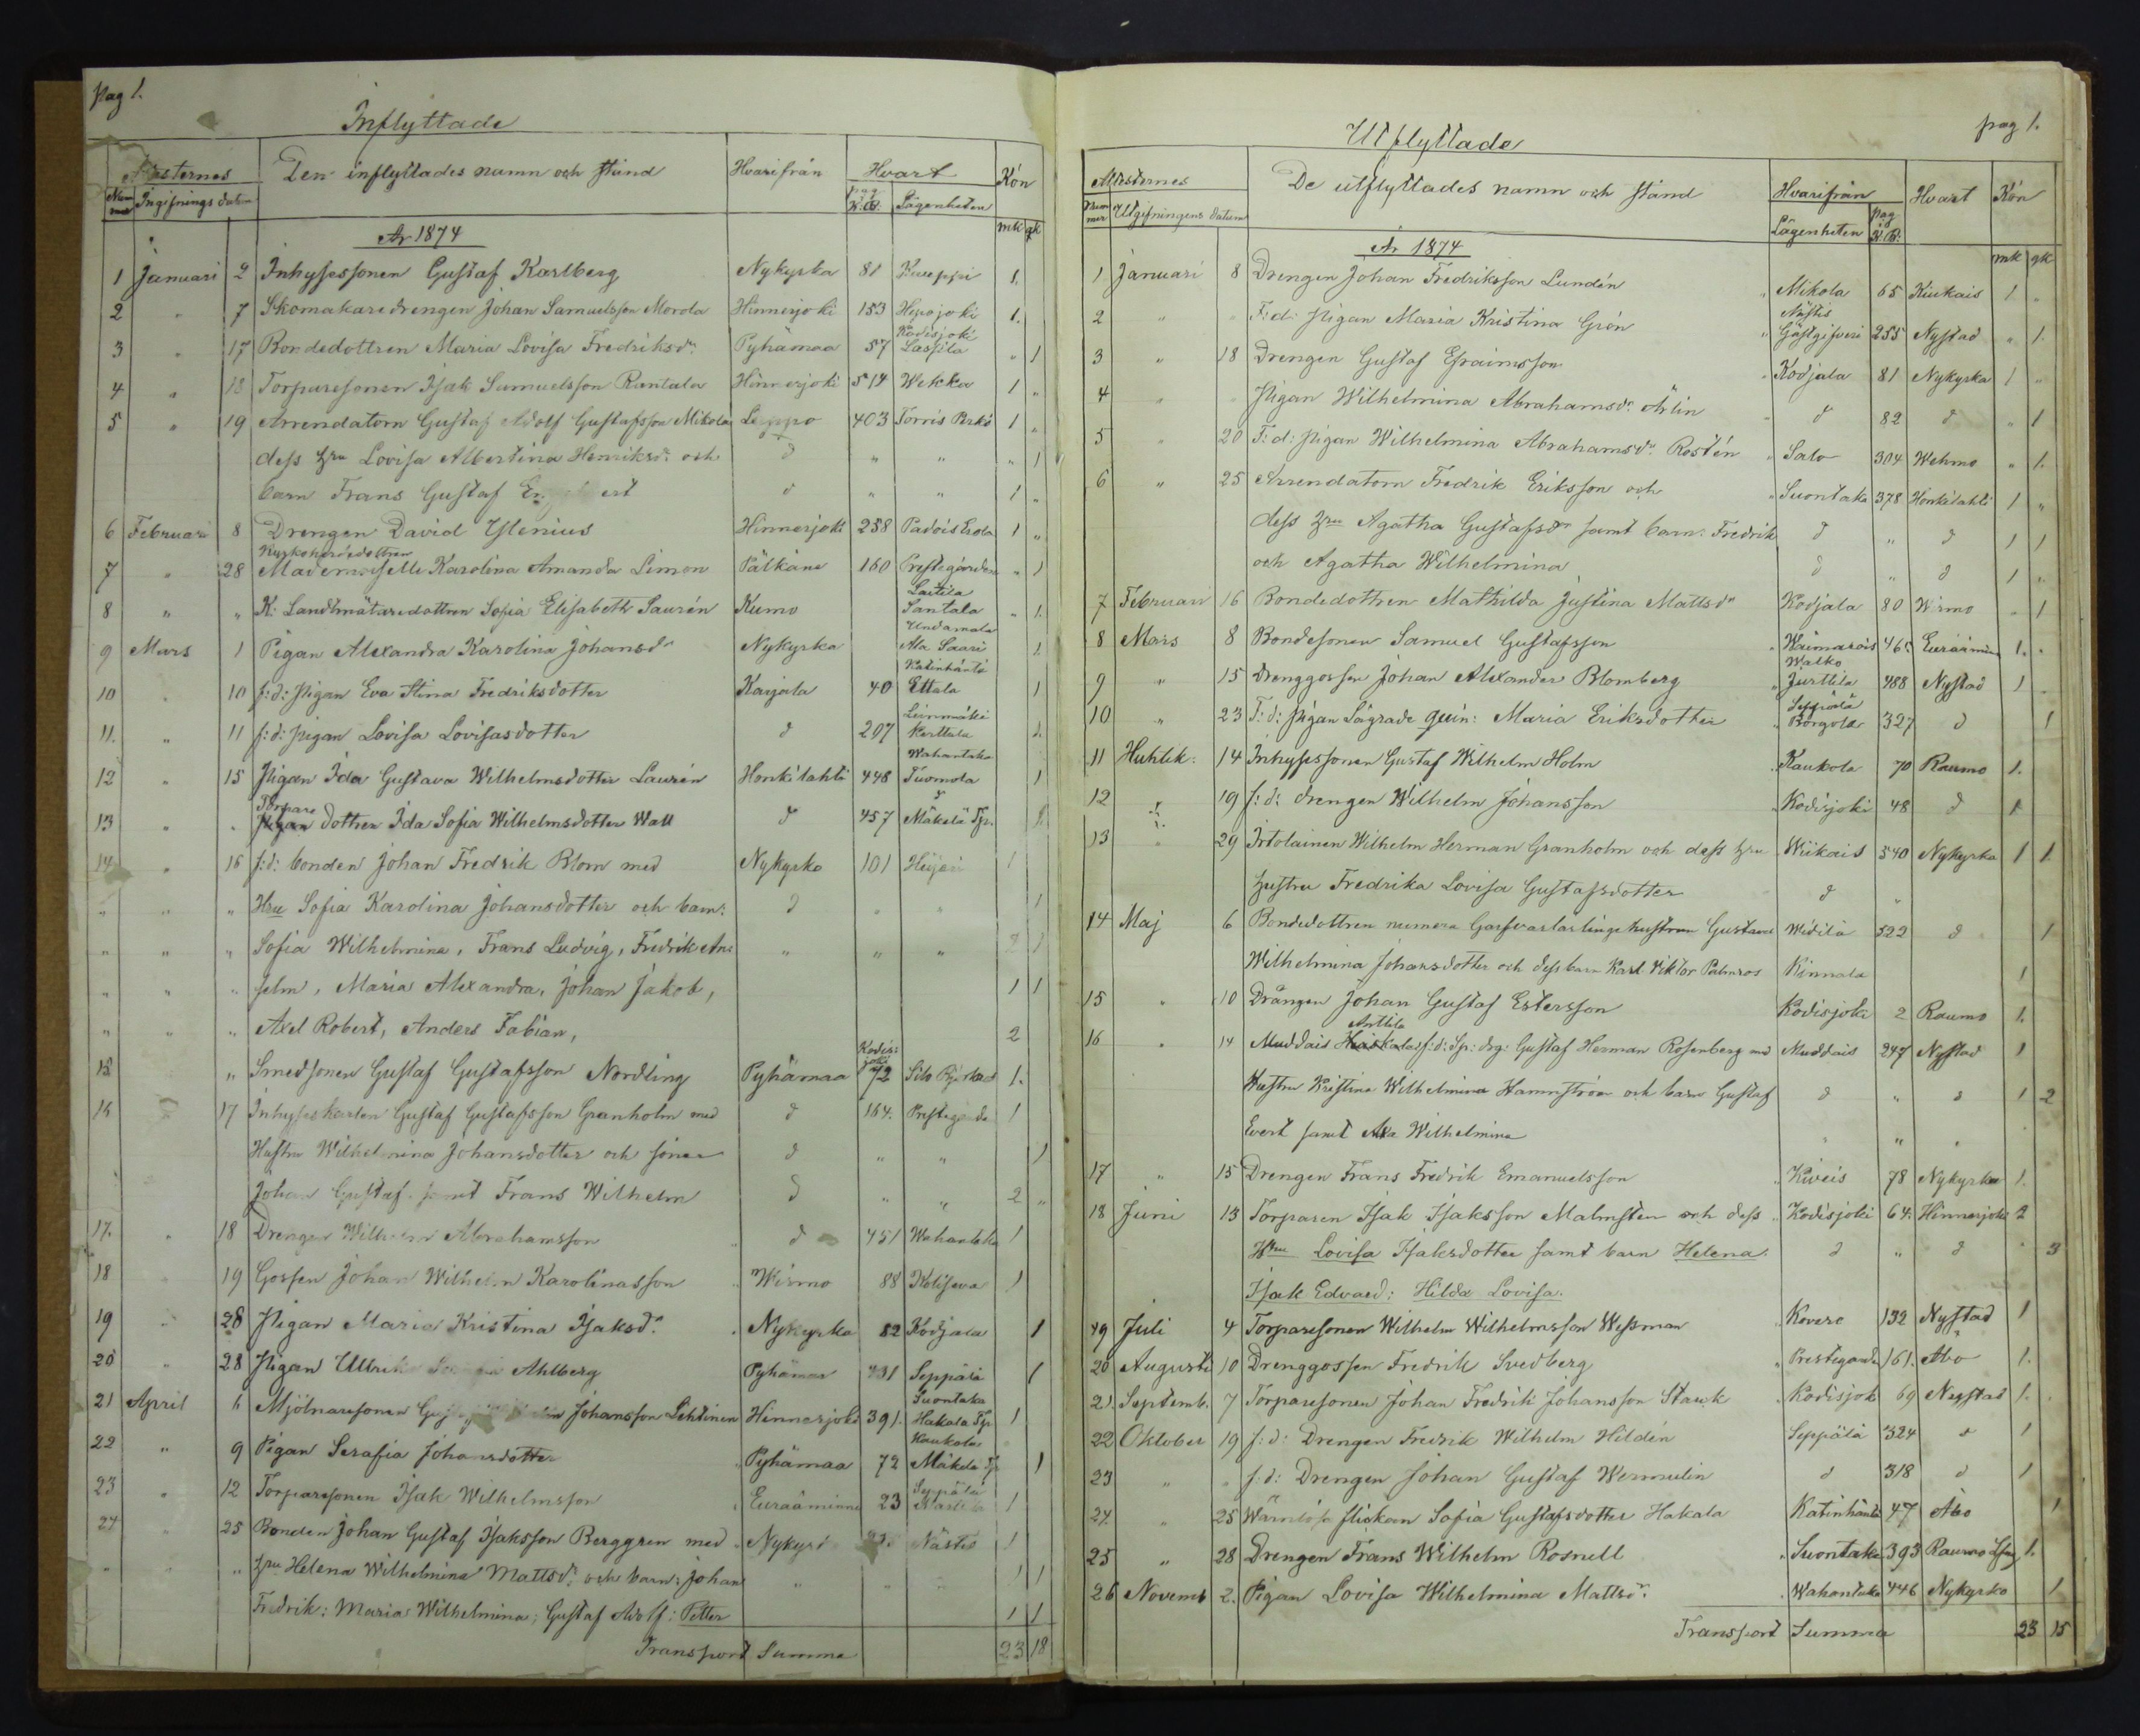 pag 1.
Inflyttade
Attesternas Den inflyttades namn och stånd Hvarifrån Hvart Kön
Nummer Ingifnings datum pag K.B. Lägenheten mk qk
År 1874
1 Januari 2 Inhysessonen Gustaf Karlberg Nykyrka 81 Kueppi 1.
2 " 7 Skomakaredrengen Johan Samuelsson Morola Hinnerjoki 153 Hepojoki 1.
3 " 17 Bondedottren Maria Lovisa Fredriksdr Pyhämaa 57 Kodisjoki Lassila " 1
4 " 18 Torparesonen Isak Samuelsson Rantala Hinnerjoki 514 Wekka 1 "
5 " 19 Arrendatorn Gustaf Adolf Gustafsson Mikola Leppo 403 Torris Perko 1 "
dess hru Lovisa Albertina Henriksdr och d " " " 1
barn Frans Gustaf d " " 1 "
6 Februari 8 Drengen David Ylenius Hinnerjoki 258 Padois Erola 1 "
7 " 28 Kyrkoherdedottren Mademoiselle Karolina Amanda Limon Pälkäne 160 Prestegården " 1
8 " " K. Landtmätaredottren Sofia Elisabeth Saurén Kumo Laitila Santala " 1.
9 Mars 1 Pigan Alexandra Karolina Johansdr Nykyrka Undamala Ala Saari 1.
10 " 10 f:d: pigan Eva Stina Fredriksdotter Karjala 40 Katinhäntä Ettala 1
11. " 11 f:d: pigan Lovisa Lovisasdotter d 207 Leinmäki Kerttula 1.
12 " 15 Pigan Ida Gustava Wilhelmsdotter Laurén Honkilahti 448 Wahantaka Tuomola 1
13 " " Torpare dottren Ida Sofia Wilhelmsdotter Wall d 457 d Mäkelä Tp. 1.
14 " 16 f:d: bonden Johan Fredrik Blom med Nykyrko 101 Heijari 1
" " " Hru Sofia Karolina Johansdotter och barn: d " " 1
" " " Sofia Wilhelmina, Frans Ludvig, Fredrik An= " " " 2 1
" " " selm, Maria Alexandra, Johan Jakob, 1 1
" " " Axel Robert, Anders Fabian, 2
15 " Smedsonen Gustaf Gustafsson Nordling Pyhämaa Kodisjoki 72 1.
16 17 Inhyseskarlen Gustaf Gustafsson Granholm med d 164. 1
Hustru Wilhelmina Johansdotter och söner d " " 1
Johan Gustaf samt Frans Wilhelm d " " 2 "
17. " 18 Drengen Wilhelm Abrahamsson d 451 Wahantaka 1
18 19 Gossen Johan Wilhelm Karolinasson Wirmo 88 1
19 " 28 Pigan Maria Kristina Isaksdr Nykyrka 82 Kodjala 1
20 " 28 Pigan Ulrika Ahlberg Pyhämaa 331 Seppälä 1
21 April 1 Mjölnaresonen Johansson Lehtinen Hinnerjoki 391. Suontaka Hakala Tp 1
22 " 9 Pigan Serafia Johansdotter Pyhämaa 72 Kaukola Mäkelä Tp 1
23 " 12 Torparesonen Isak Wilhelmsson Euraåminne 23 Seppälä 1
24 " 25 Bonden Johan Gustaf Isaksson Berggren med Nykyrk Nästis 1
" " " hru Helena Wilhelmina Mattsdr och barn: Johan " " " 1 1
Fredrik: Maria Wilhelmina; Gustaf Adolf: Petter 1 1
Transport Summa 23 18
pag 1.
Utflyttade
Attesternes De utflyttades namn och stånd Hvarifrån Hvart Kön
Nummer Utgifningens datum Lägenheten pag K.B. mk qk
År 1874
1 Januari 8 Drengen Johan Fredriksson Lundén Mikola 65 Kiukais 1 "
2 " " F:d: Pigan Maria Kristina Grön Nästis Gästgifveri 255 Nystad " 1.
3 " 18 Drengen Gustaf Efraimsson Kodjala 81 Nykyrka 1 "
4 " " Pigan Wilhelmina Abrahamsdr d 82 d " 1
5 " 20 F:d: pigan Wilhelmina Abrahamsdr Rostén Salo 304 Wehmo " 1.
6 " 25 Arrendatorn Fredrik Eriksson och Suontaka 378 Honkilahti 1 "
dess hru Agatha Gustafsdr samt barn: Fredrik d " d 1 1
och Agatha Wilhelmina d " d 1 "
7 Februari 16 Bondedottren Mathilda Justina Mattsdr Kodjala 80 Wirmo " 1
8 Mars 8 Bondesonen Samuel Gustafsson Waimarois 465 Euraåminne 1. "
9 " 15 Drenggossen Johan Alexander Blomberg Walko Jurttila 488 Nystad 1 "
10 " 23 F:d: pigan Lägrade quin: Maria Eriksdotter Seppälä Borgola 327 d 1
11 Huhtik. 14 Inhysessonen Gustaf Wilhelm Holm Kaukola 70 Raumo 1.
12 " 19 f:d: drengen Wilhelm Johansson Kodisjoki 48 d 1
13 " 29 Irtolainen Wilhelm Herman Granholm och dess hru Wiikais 540 Nykyrka 1 1
hustru Fredrika Lovisa Gustafsdotter d "
14 Maj 6 Bondedottren numera Garfvarlärlingshustrun Gustava Widilä 522 d 1
Wilhelmina Johansdotter och dess barn Karl Viktor Palmros Kinnala 1
15 " 10 Drängen Johan Gustaf Estersson Kodisjoki 2 Raumo 1.
16 " 14 Muddais Anttila f:d: Sp: drg: Gustaf Herman Rosenberg med Muddais 247 Nystad 1
Hustru Kristina Wilhelmina Hammström och barn Gustaf d " d 1 2
Evert samt Alxa Wilhelmina " " "
17 " 15 Drengen Frans Fredrik Emanuelsson Kiveis 78 Nykyrka 1.
18 Juni 13 Torparen Isak Isaksson Malmsten och dess Kodisjoki 64. Hinnerjoki 2
Hru Lovisa Isaksdotter samt barn Helena. d " d " 3
Isak Edvard: Hilda Lovisa.
19 Juli 4 Torparesonen Wilhelm Wilhelmsson Wessman Kovero 132 Nystad 1
20 Augusti 10 Drenggossen Fredrik Svedberg Prestegården 161. Åbo 1.
21 Septemb. 7 Torparesonen Johan Fredrik Johansson Stark Kodisjok 69 Nystad 1.
22 Oktober 19 f:d: Drengen Fredrik Wilhelm Hildén Seppälä 324 d 1
23 " " f:d: Drengen Johan Gustaf Wermelin d 318 d 1
24 " 25 Wärnlösa flickan Sofia Gustafsdotter Hakala Katinhäntä 47 Åbo 1
25 " 28 Drengen Frans Wilhelm Rosnell Suontaka 393 Raumo 1.
26 Novemb 2. Pigan Lovisa Wilhelmina Mattsdr Wahantaka 446 Nykyrko 1
Transport Summa 23 15